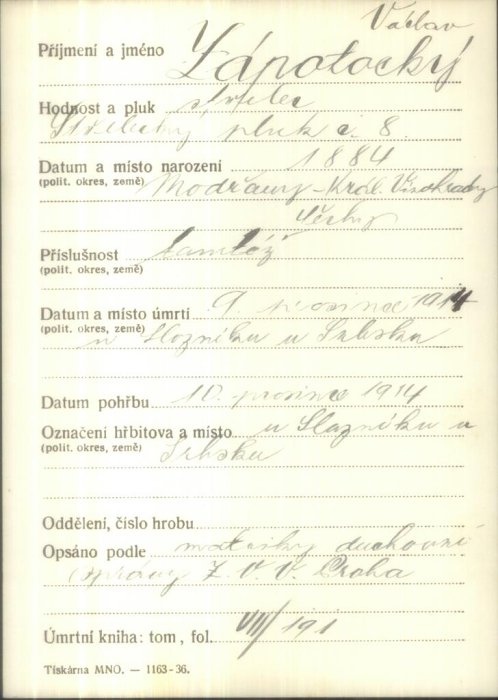 Václav
Příjmení a jméno Zápotocký
Hodnost a pluk střelec
Střelecký pluk č. 8.
Datum a místo narození 1884
(polit. okres, země) Modřany - Král. Vinohrady
Čechy
Příslušnost tamtéž
(polit. okres, země)
Datum a místo úmrtí 9. prosince 1914
(polit. okres, země) u Slozníku u Srbsku
Datum pohřbu 10. prosince 1914
Označení hřbitova a místo u Slozníku u
(polit. okres, země) Srbsku
Oddělení, číslo hrobu
Opsáno podle matriky duchovní
správy Z. V. V. Praha
Úmrtní kniha: tom, fol. VIII/191
Tiskárna MNO. — 1163-36.